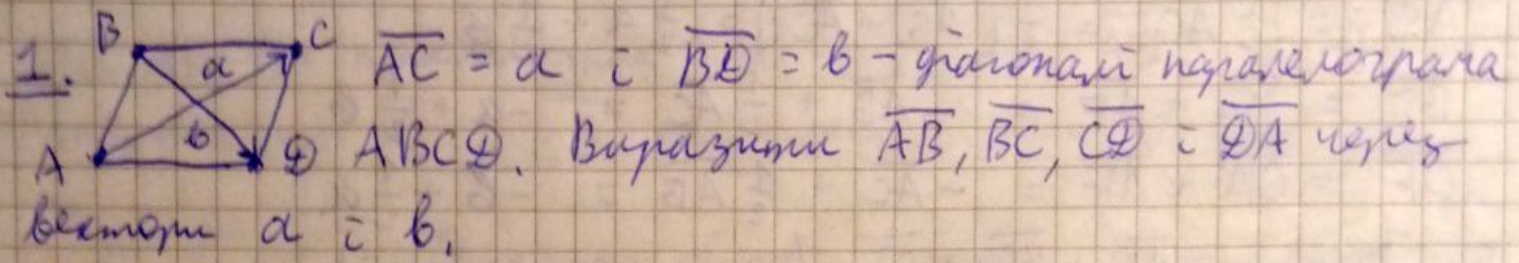 B C
a
в
A D
1. AC = a і BD = в – діагоналі паралелограма
ABCD. Виразити AB, BC, CD і DA через
вектори a і в.